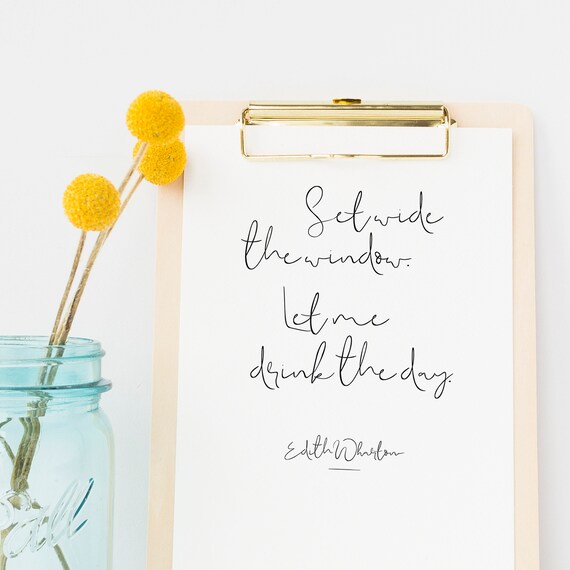 Set wide
the window.
Let me
drink the day.
Edith Wharton
Ball